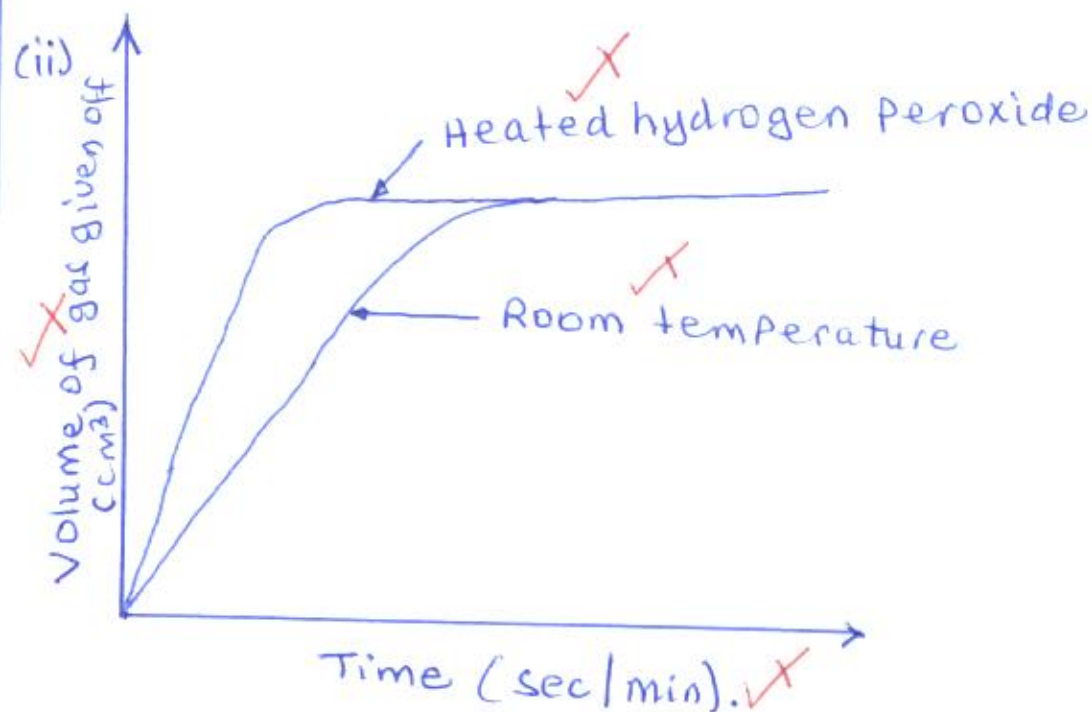 (ii)
Volume of gas given off
(cm3)
Heated hydrogen peroxide
Room temperature
Time (sec/min).